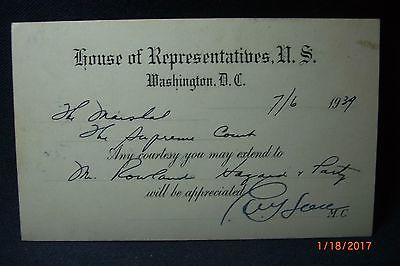 House of Representatives, U. S.
Washington, D. C.
7/6 1939
The Marshal
The Supreme Court
Any courtesy you may extend to
Mr. Rowland Hazard & Party
will be appreciated.
M. C.
1/18/2017